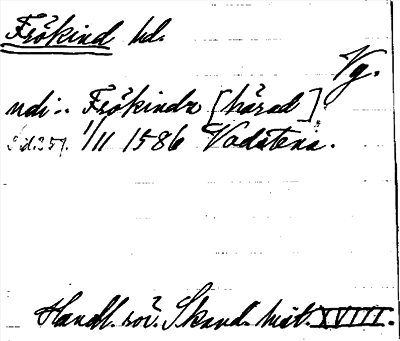 Frökind hd.
Vg.
ndi :. Frökindz [härad]
Sid. 357. 1/11 1586 Vadstena.
Handl. rör. Skand. hist. XVIII.